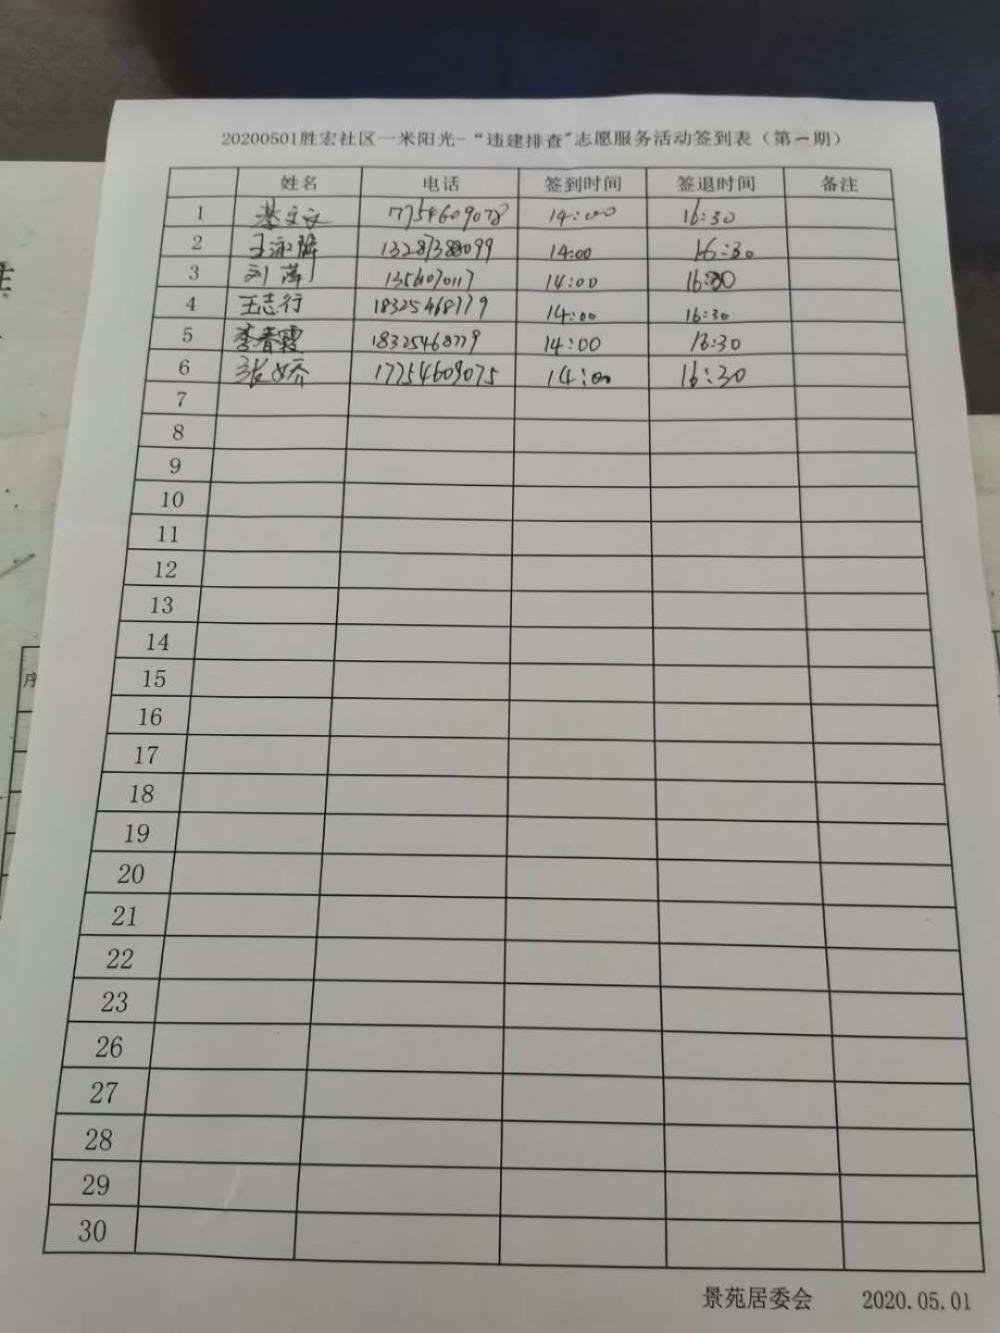 20200501胜宏社区一米阳光-“违建排查”志愿服务活动签到表（第一期）
姓名 电话 签到时间 签退时间 备注
1 17754609078 14:00 16:30
2 13287388099 14:00 16:30
3 刘萍 14:00 16:30
4 王志行 18325468779 14:00 16:30
5 李春霞 18325468779 14:00 16:30
6 张娇 17754609075 14:00 16:30
7
8
9
10
11
12
13
14
15
16
17
18
19
20
21
22
23
26
27
28
29
30
景苑居委会 2020.05.01
序